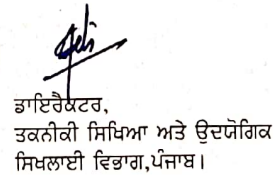 ਡਾਇਰੈਕਟਰ,
ਤਕਨੀਕੀ ਸਿਖਿਆ ਅਤੇ ਉਦਯੋਗਿਕ
ਸਿਖਲਾਈ ਵਿਭਾਗ,ਪੰਜਾਬ।